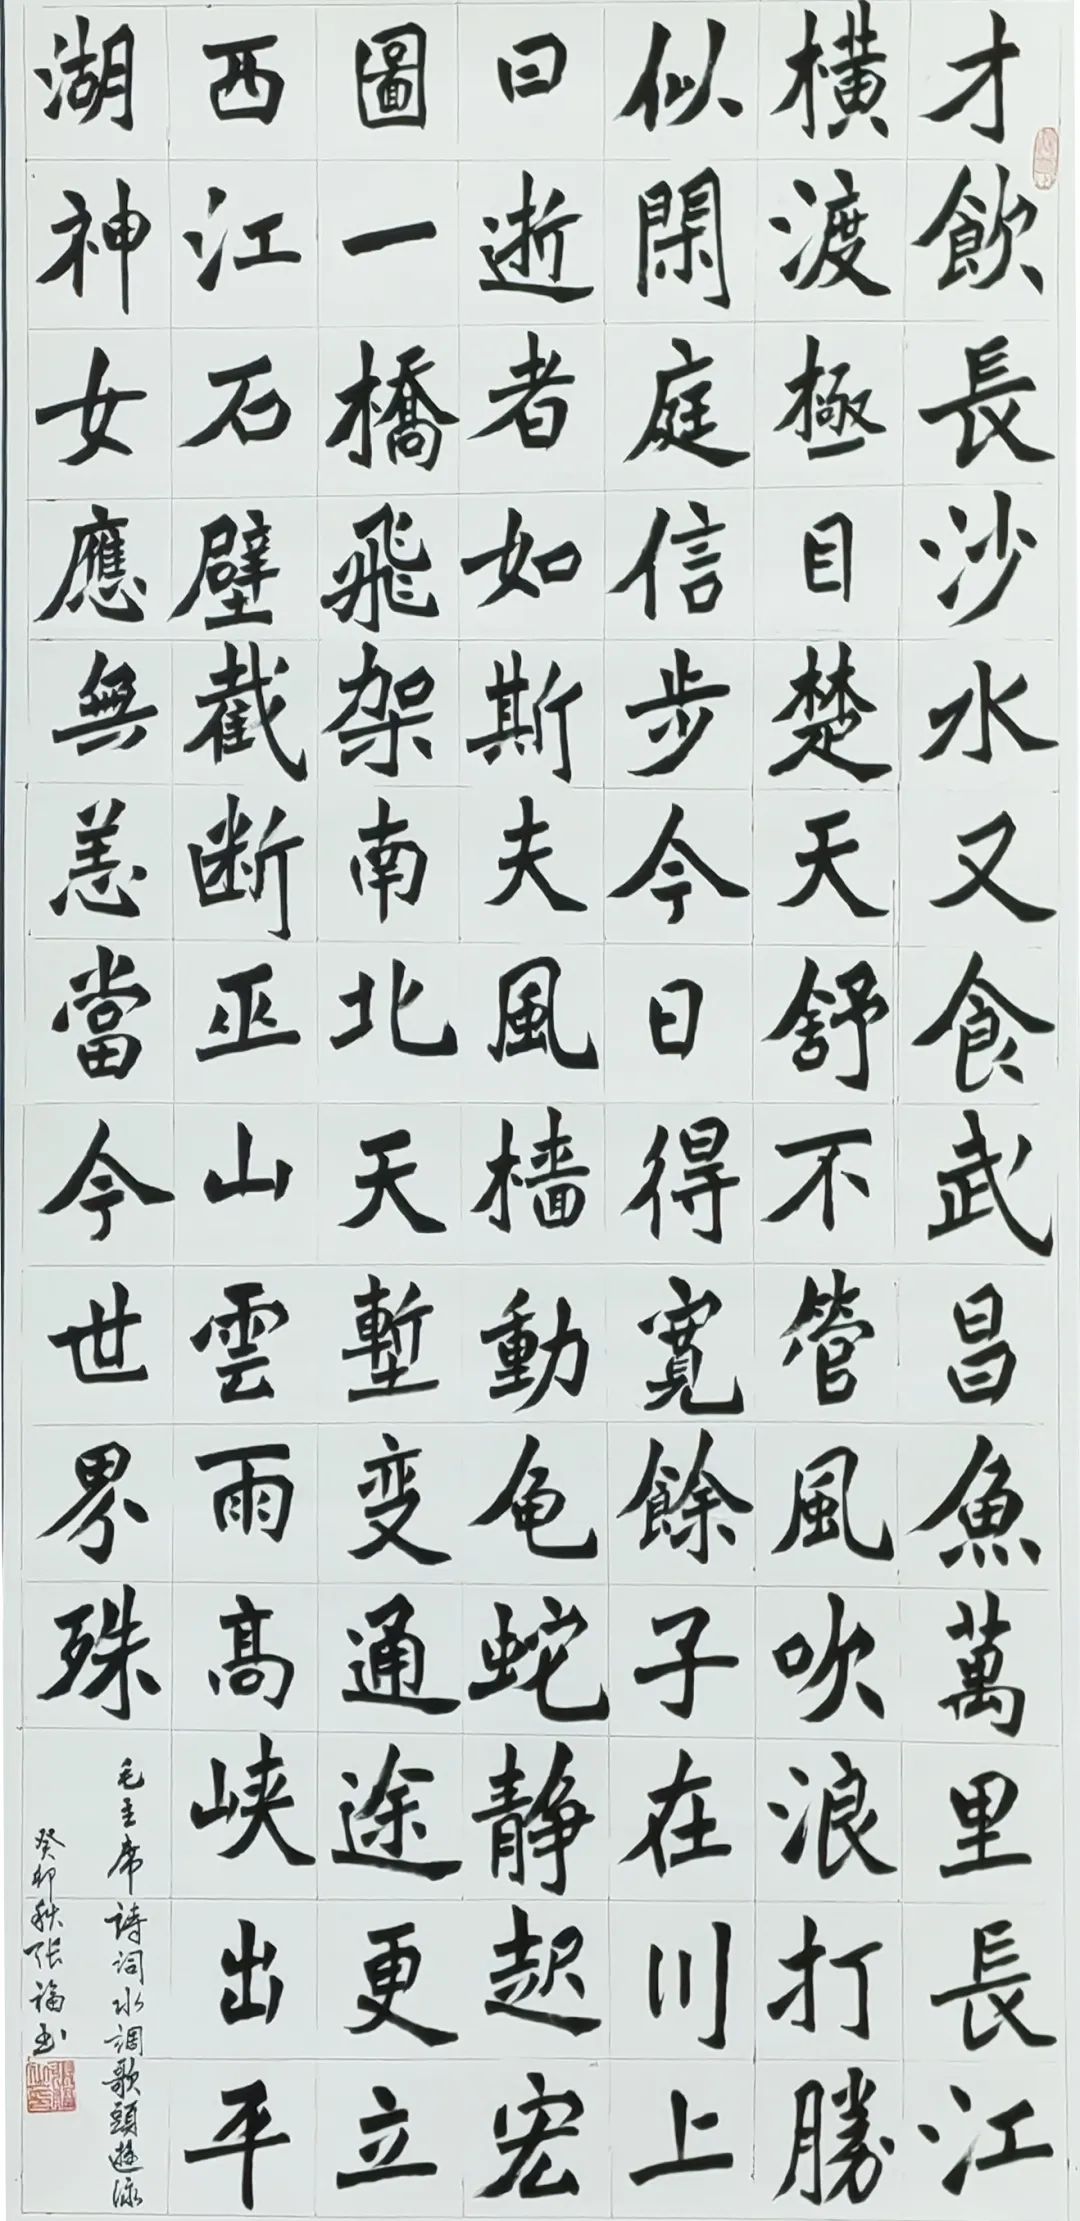 才飲長沙水又食武昌魚萬里長江
橫渡極目楚天舒不管風吹浪打勝
似閑庭信步今日得寬餘子在川上
曰逝者如斯夫風檣動龟蛇静起宏
圖一橋飛架南北天塹变通途更立
西江石壁截断巫山雲雨高峡出平
湖神女應無恙當今世界殊
毛主席詩詞水調歌頭遊泳
癸卯秋张福书